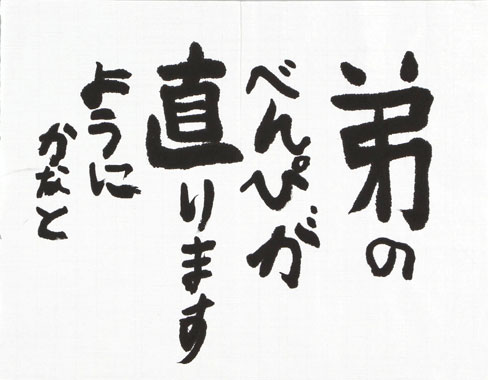 弟の
べんぴが
直ります
ように
かなと